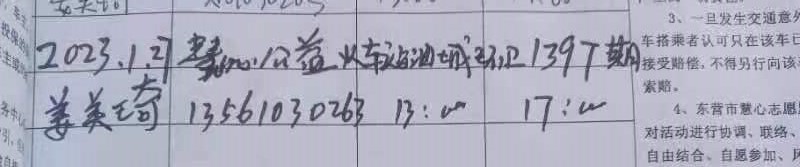 2023.1.27 慧心公益从车站油城环卫1397期
姜美琦 13561030263 13:00 17:00
3、一旦发生交通意外
车搭乘者认可只在该车已
接受赔偿,不得另行向该
索赔。
4、东营市慧心志愿
对活动进行协调、联络、
自由结合、自愿参加、风